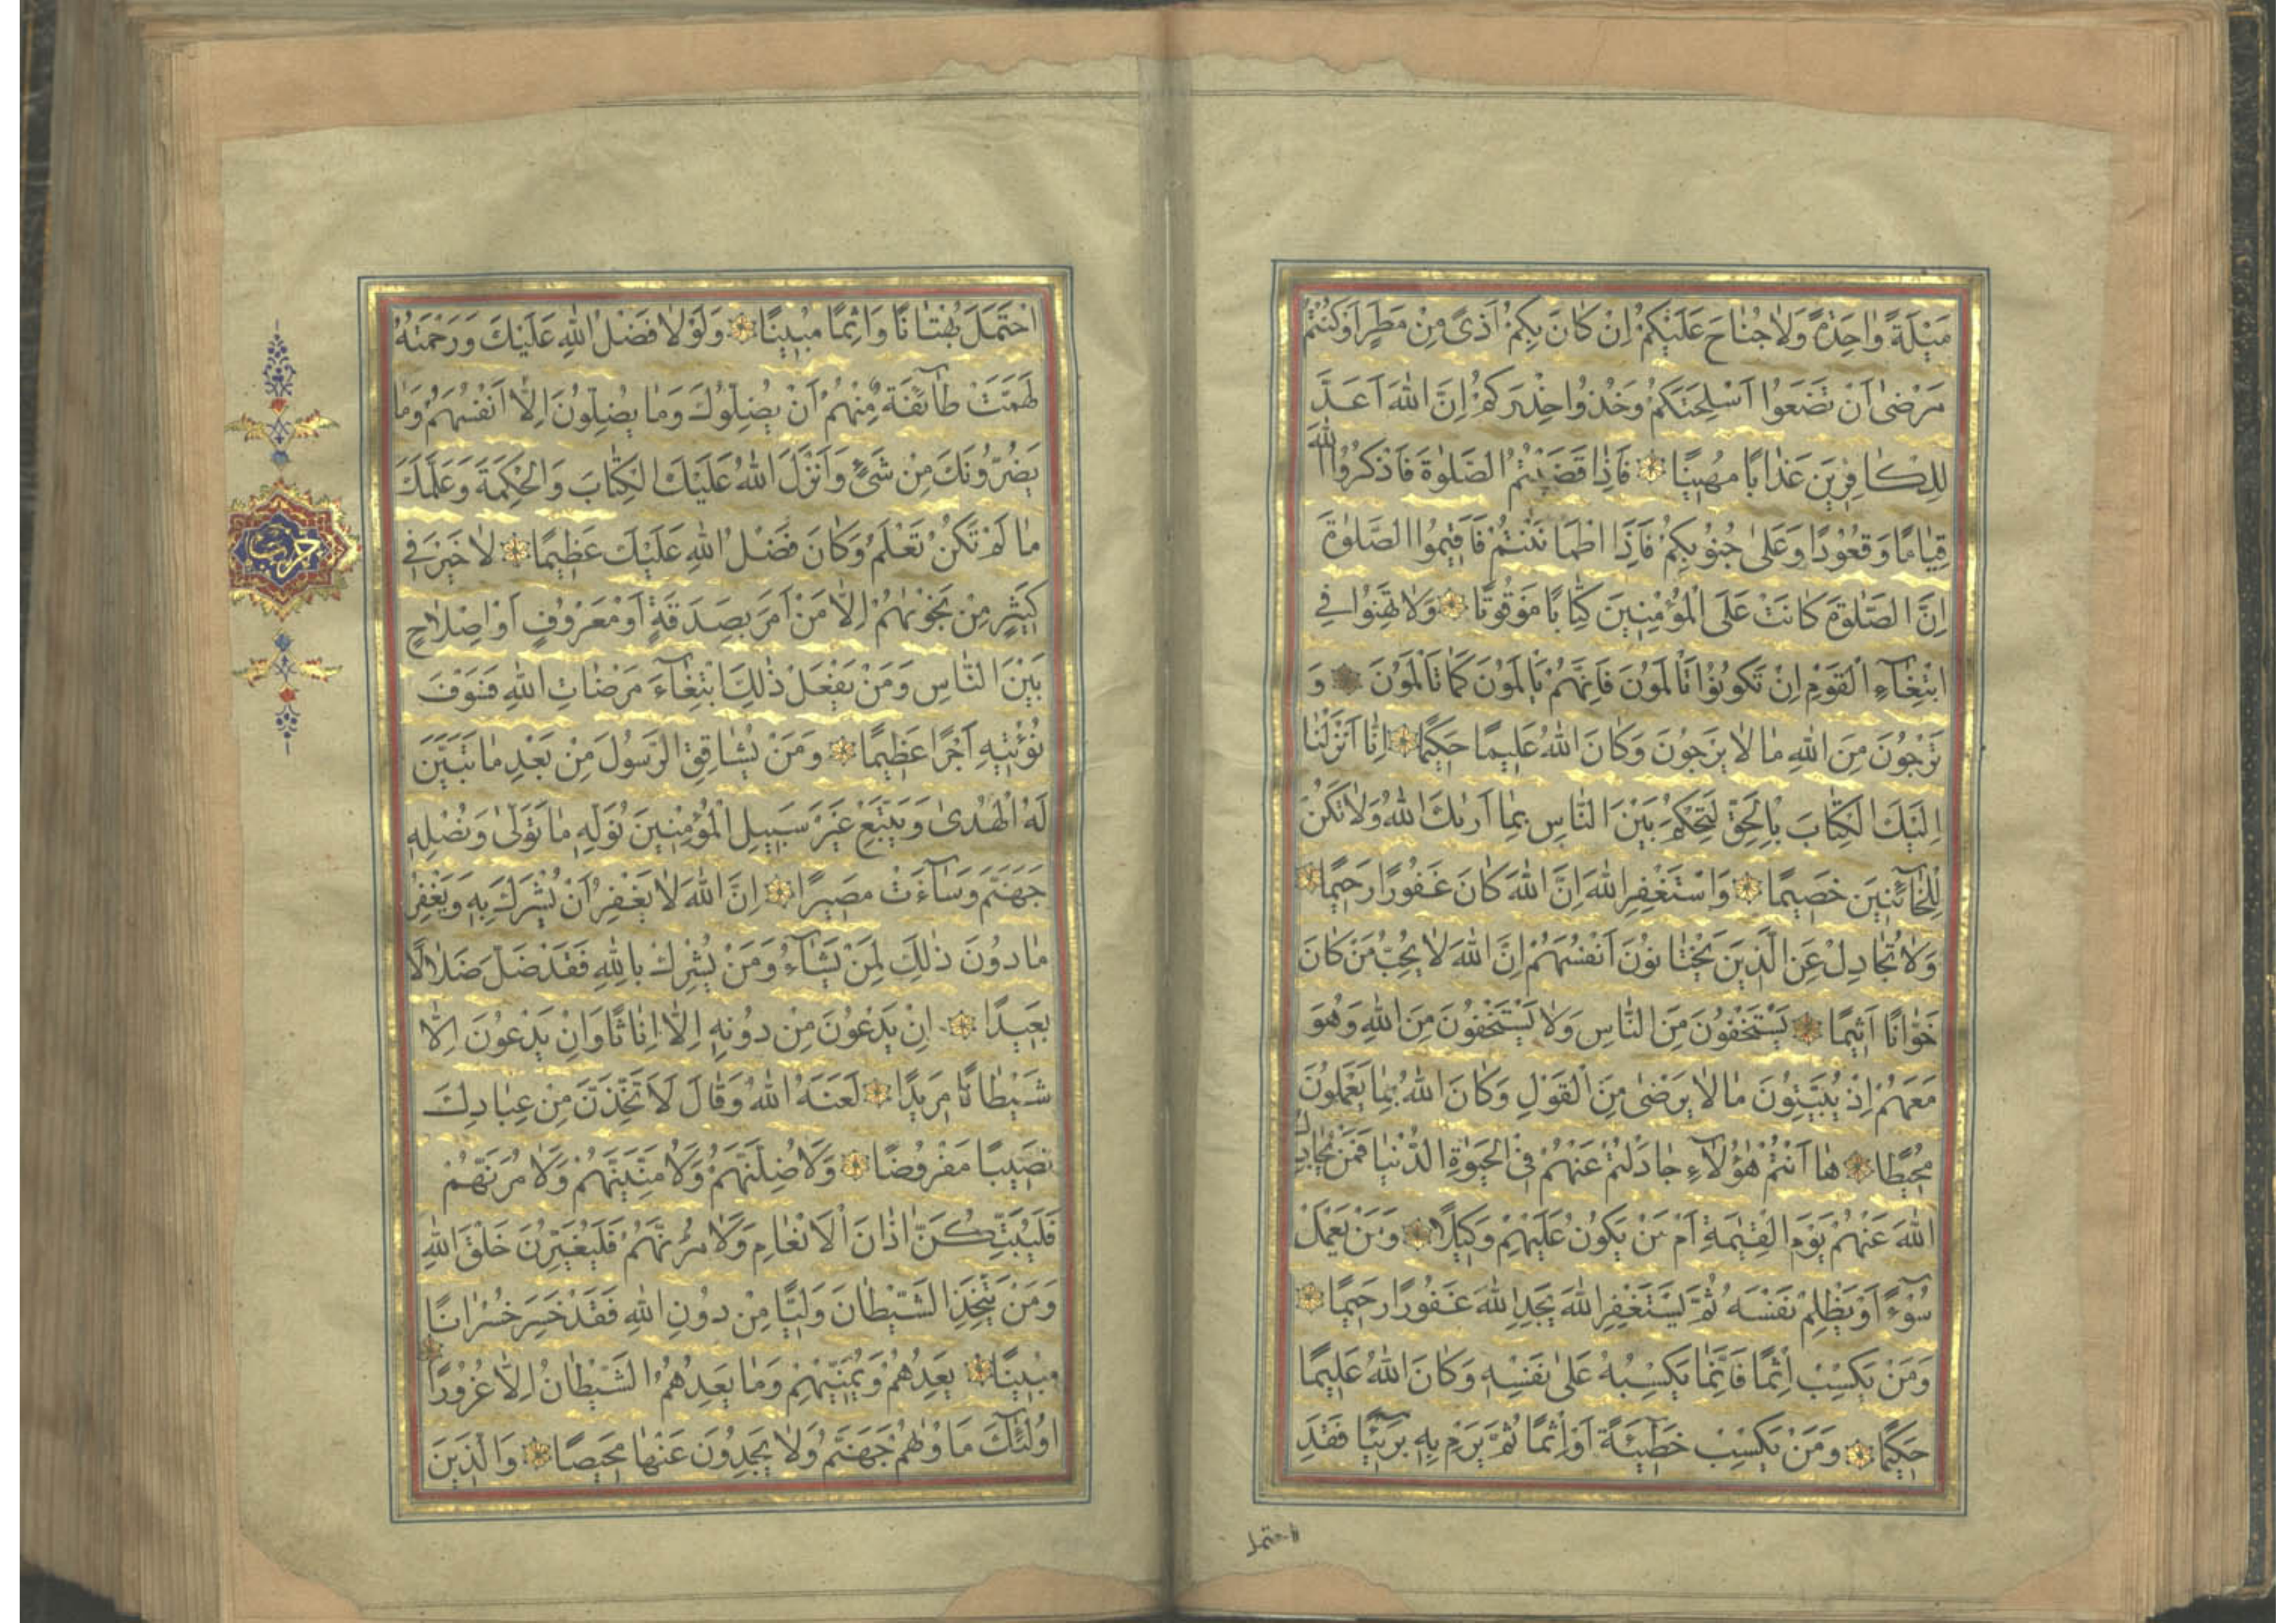 مَيْلَةً وٰاحِدَةً وَلاٰ جُنٰاحَ عَلَيْكُمْ اِنْ كٰانَ بِكُمْ اَذىً مِنْ مَطَرٍ اَوْ كُنْتُمْ
مَرْضىٰ اَنْ تَضَعُوا اَسْلِحَتَكُمْ وَخُذُوا حِذْرَكُمْ اِنَّ اللّٰهَ اَعَدَّ
لِلْكٰافِرينَ عَذٰابًا مُهينًا فَاِذٰا قَضَيْتُمُ الصَّلوٰةَ فَاذْكُرُوا اللّٰهَ
قِيٰامًا وَقُعُودًا وَعَلىٰ جُنُوبِكُمْ فَاِذَا اطْمَاْنَنْتُمْ فَاَقيمُوا الصَّلوٰةَ
اِنَّ الصَّلوٰةَ كٰانَتْ عَلَى الْمُؤْمِنينَ كِتٰابًا مَوْقُوتًا وَلاٰ تَهِنُوا فِي
ابْتِغٰاۤءِ الْقَوْمِ اِنْ تَكُونُوا تَاْلَمُونَ فَاِنَّهُمْ يَاْلَمُونَ كَمٰا تَاْلَمُونَ وَ
تَرْجُونَ مِنَ اللّٰهِ مٰا لاٰ يَرْجُونَ وَكٰانَ اللّٰهُ عَليمًا حَكيمًا اِنّٰا اَنْزَلْنٰا
اِلَيْكَ الْكِتٰابَ بِالْحَقِّ لِتَحْكُمَ بَيْنَ النّٰاسِ بِمٰا اَرٰيكَ اللّٰهُ وَلاٰ تَكُنْ
لِلْخٰاۤئِنينَ خَصيمًا وَاسْتَغْفِرِ اللّٰهَ اِنَّ اللّٰهَ كٰانَ غَفُورًا رَحيمًا
وَلاٰ تُجٰادِلْ عَنِ الَّذينَ يَخْتٰانُونَ اَنْفُسَهُمْ اِنَّ اللّٰهَ لاٰ يُحِبُّ مَنْ كٰانَ
خَوّٰانًا اَثيمًا يَسْتَخْفُونَ مِنَ النّٰاسِ وَلاٰ يَسْتَخْفُونَ مِنَ اللّٰهِ وَهُوَ
مَعَهُمْ اِذْ يُبَيِّتُونَ مٰا لاٰ يَرْضىٰ مِنَ الْقَوْلِ وَكٰانَ اللّٰهُ بِمٰا يَعْمَلُونَ
مُحيطًا هٰا اَنْتُمْ هٰؤُلاٰۤءِ جٰادَلْتُمْ عَنْهُمْ فِي الْحَيوٰةِ الدُّنْيٰا فَمَنْ يُجٰادِلُ
اللّٰهَ عَنْهُمْ يَوْمَ الْقِيٰمَةِ اَمْ مَنْ يَكُونُ عَلَيْهِمْ وَكيلًا وَمَنْ يَعْمَلْ
سُوۤءًا اَوْ يَظْلِمْ نَفْسَهُ ثُمَّ يَسْتَغْفِرِ اللّٰهَ يَجِدِ اللّٰهَ غَفُورًا رَحيمًا
وَمَنْ يَكْسِبْ اِثْمًا فَاِنَّمٰا يَكْسِبُهُ عَلىٰ نَفْسِهِ وَكٰانَ اللّٰهُ عَليمًا
حَكيمًا وَمَنْ يَكْسِبْ خَطيۤئَةً اَوْ اِثْمًا ثُمَّ يَرْمِ بِهِ بَريۤئًا فَقَدِ
احتمل
احْتَمَلَ بُهْتٰانًا وَاِثْمًا مُبينًا وَلَوْلاٰ فَضْلُ اللّٰهِ عَلَيْكَ وَرَحْمَتُهُ
لَهَمَّتْ طٰاۤئِفَةٌ مِنْهُمْ اَنْ يُضِلُّوكَ وَمٰا يُضِلُّونَ اِلّٰا اَنْفُسَهُمْ وَمٰا
يَضُرُّونَكَ مِنْ شَيْءٍ وَاَنْزَلَ اللّٰهُ عَلَيْكَ الْكِتٰابَ وَالْحِكْمَةَ وَعَلَّمَكَ
مٰا لَمْ تَكُنْ تَعْلَمُ وَكٰانَ فَضْلُ اللّٰهِ عَلَيْكَ عَظيمًا لاٰ خَيْرَ في
كَثيرٍ مِنْ نَجْوٰيهُمْ اِلّٰا مَنْ اَمَرَ بِصَدَقَةٍ اَوْ مَعْرُوفٍ اَوْ اِصْلاٰحٍ
بَيْنَ النّٰاسِ وَمَنْ يَفْعَلْ ذٰلِكَ ابْتِغٰاۤءَ مَرْضٰاتِ اللّٰهِ فَسَوْفَ
نُؤْتيهِ اَجْرًا عَظيمًا وَمَنْ يُشٰاقِقِ الرَّسُولَ مِنْ بَعْدِ مٰا تَبَيَّنَ
لَهُ الْهُدىٰ وَيَتَّبِعْ غَيْرَ سَبيلِ الْمُؤْمِنينَ نُوَلِّهِ مٰا تَوَلّىٰ وَنُصْلِهِ
جَهَنَّمَ وَسٰاۤءَتْ مَصيرًا اِنَّ اللّٰهَ لاٰ يَغْفِرُ اَنْ يُشْرَكَ بِهِ وَيَغْفِرُ
مٰا دُونَ ذٰلِكَ لِمَنْ يَشٰاۤءُ وَمَنْ يُشْرِكْ بِاللّٰهِ فَقَدْ ضَلَّ ضَلاٰلًا
بَعيدًا اِنْ يَدْعُونَ مِنْ دُونِهِ اِلّٰا اِنٰاثًا وَاِنْ يَدْعُونَ اِلّٰا
شَيْطٰانًا مَريدًا لَعَنَهُ اللّٰهُ وَقٰالَ لَاَتَّخِذَنَّ مِنْ عِبٰادِكَ
نَصيبًا مَفْرُوضًا وَلَاُضِلَّنَّهُمْ وَلَاُمَنِّيَنَّهُمْ وَلَاٰمُرَنَّهُمْ
فَلَيُبَتِّكُنَّ اٰذٰانَ الْاَنْعٰامِ وَلَاٰمُرَنَّهُمْ فَلَيُغَيِّرُنَّ خَلْقَ اللّٰهِ
وَمَنْ يَتَّخِذِ الشَّيْطٰانَ وَلِيًّا مِنْ دُونِ اللّٰهِ فَقَدْ خَسِرَ خُسْرٰانًا
مُبينًا يَعِدُهُمْ وَيُمَنّيهِمْ وَمٰا يَعِدُهُمُ الشَّيْطٰانُ اِلّٰا غُرُورًا
اُولٰۤئِكَ مَاْوٰيهُمْ جَهَنَّمُ وَلاٰ يَجِدُونَ عَنْهٰا مَحيصًا وَالَّذينَ
حزب